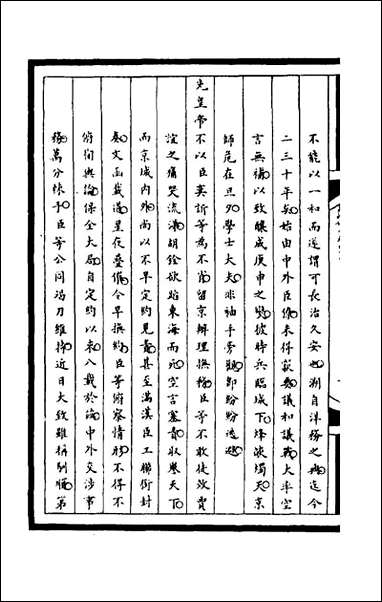 不能以一和而遂謂可長治久安也溯自洋務之興迄今
二三十年矣始由中外臣僚未得窾要議和議戰大率空
言無補以致釀成庚申之變彼時兵臨城下烽燄燭天京
師危在旦夕學士大夫非袖手旁觀即紛紛逃避
先皇帝不以臣奕訢等為不肖留京辦理撫務臣等不敢徒效賈
誼之痛哭流涕胡銓欲蹈東海而死空言塞責取譽天下
而京城內外尚以不早定約見責甚至滿漢臣工聯銜封
奏文函載道星夜疊催令早撫約臣等俯察情形不得不
俯徇輿論保全大局自定約以來八載於茲中外交涉事
務萬分棘手臣等公同竭力維持近日大致雖稱馴順第